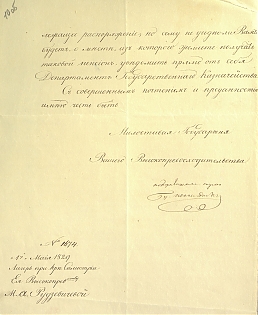 нужное распоряжение; по сему не угодно ли Вамъ
будетъ о мѣстѣ, изъ котораго желаете получать
таковой пенсіонъ, увѣдомить прямо отъ себя
Департаментъ Государственнаго Казначейства.
Съ совершеннымъ почтеніемъ и преданностію
имѣю честь быть
Милостивая Государыня
Вашего Высокопревосходительства
№ 1674
Маія 1829
Лагерь при кр. Силистріи
Ея Высокопр.
М. А. Рудзевичевой